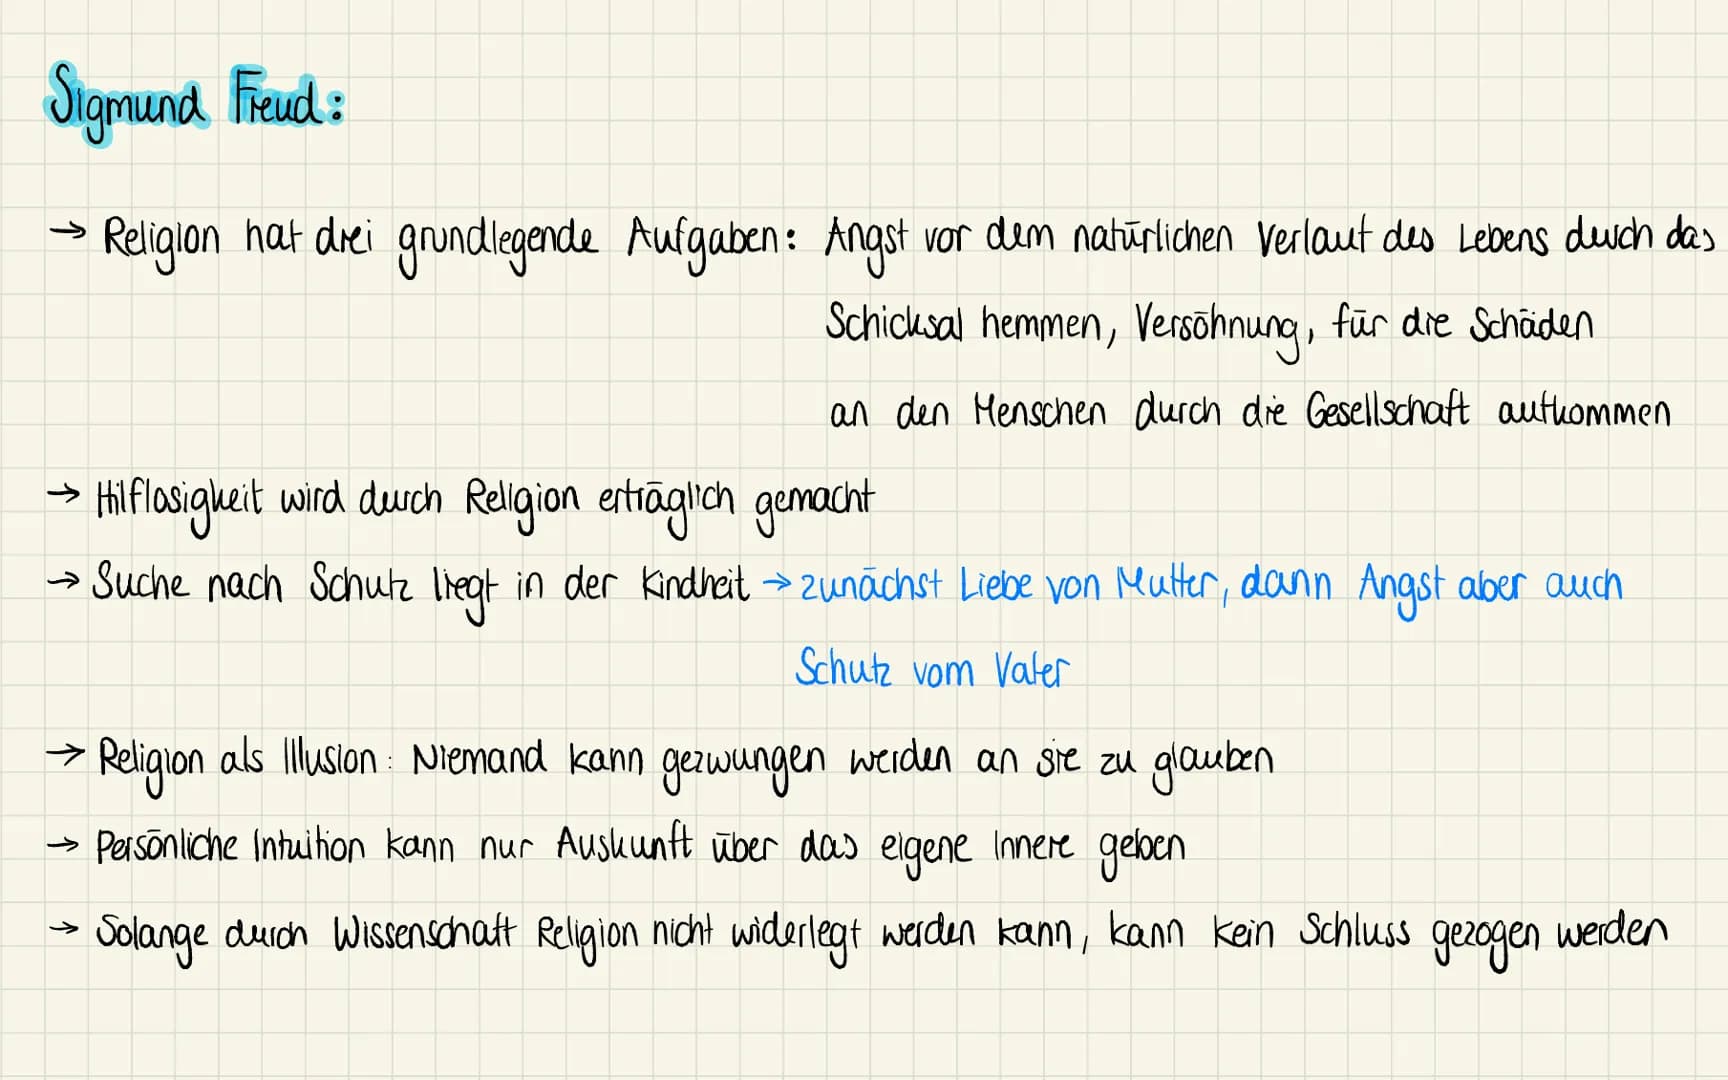 Sigmund Freud:
→ Religion hat drei grundlegende Aufgaben: Angst vor dem natürlichen Verlauf des Lebens durch das
Schicksal hemmen, Versöhnung, für die Schäden
an den Menschen durch die Gesellschaft aufkommen
→ Hilflosigkeit wird durch Religion erträglich gemacht
→ Suche nach Schutz liegt in der Kindheit → zunächst Liebe von Mutter, dann Angst aber auch
Schutz vom Vater
→ Religion als Illusion: Niemand kann gezwungen werden an sie zu glauben
→ Persönliche Intuition kann nur Auskunft über das eigene Innere geben
→ Solange durch Wissenschaft Religion nicht widerlegt werden kann, kann kein Schluss gezogen werden